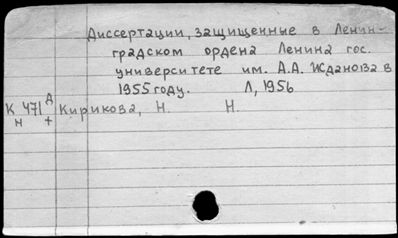 Диссертации, защищенные в Ленин-
градском ордена Ленина гос.
университете им. А.А. Жданова в
1955 году. Л, 1956
К 471 Д Кирикова, Н. Н.
н +